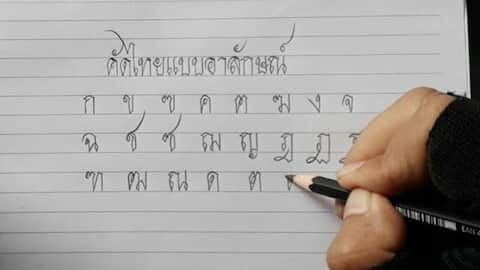 คัดไทยแบบอาลักษณ์
ก ข ฃ ค ฅ ฆ ง จ
ฉ ช ซ ฌ ญ ฎ ฏ
ฑ ฒ ณ ด ต